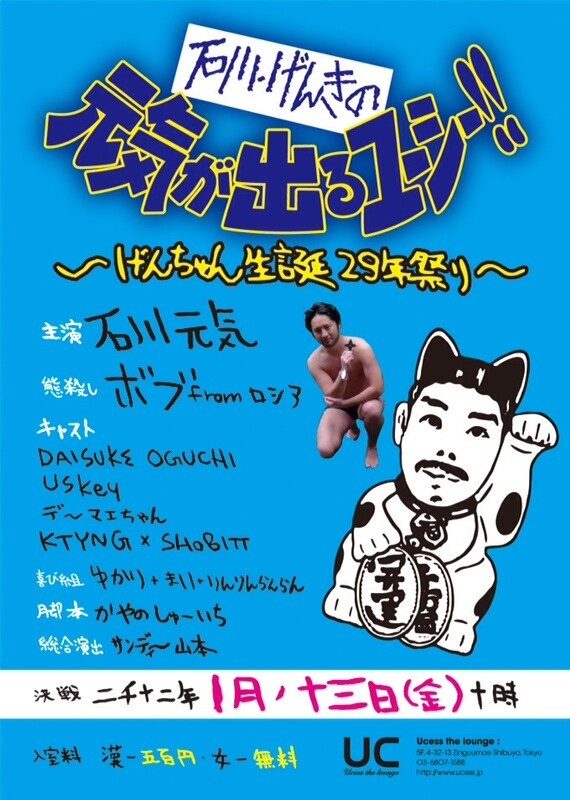 石川げんきの
元気が出るユーシー!!
〜げんちゃん生誕29年祭り〜
主演 石川元気
態殺し ボブ from ロシア
キャスト
DAISUKE OGUCHI
USKey
デ〜マエちゃん
KTYNG × SHOBITT
喜び組 ゆかり+まい+りんりんらんらん
脚本 かやのしゃーいち
総合演出 サンディー山本
決戦 二千十二年 1月/十三日(金)十時
入室料 漢ー五百円・女ー無料
UC
Ucess the lounge
Ucess the lounge :
5F, 4-32-13 Zinguumae Shibuya, Tokyo
03-6807-1588
http://www.ucess.jp